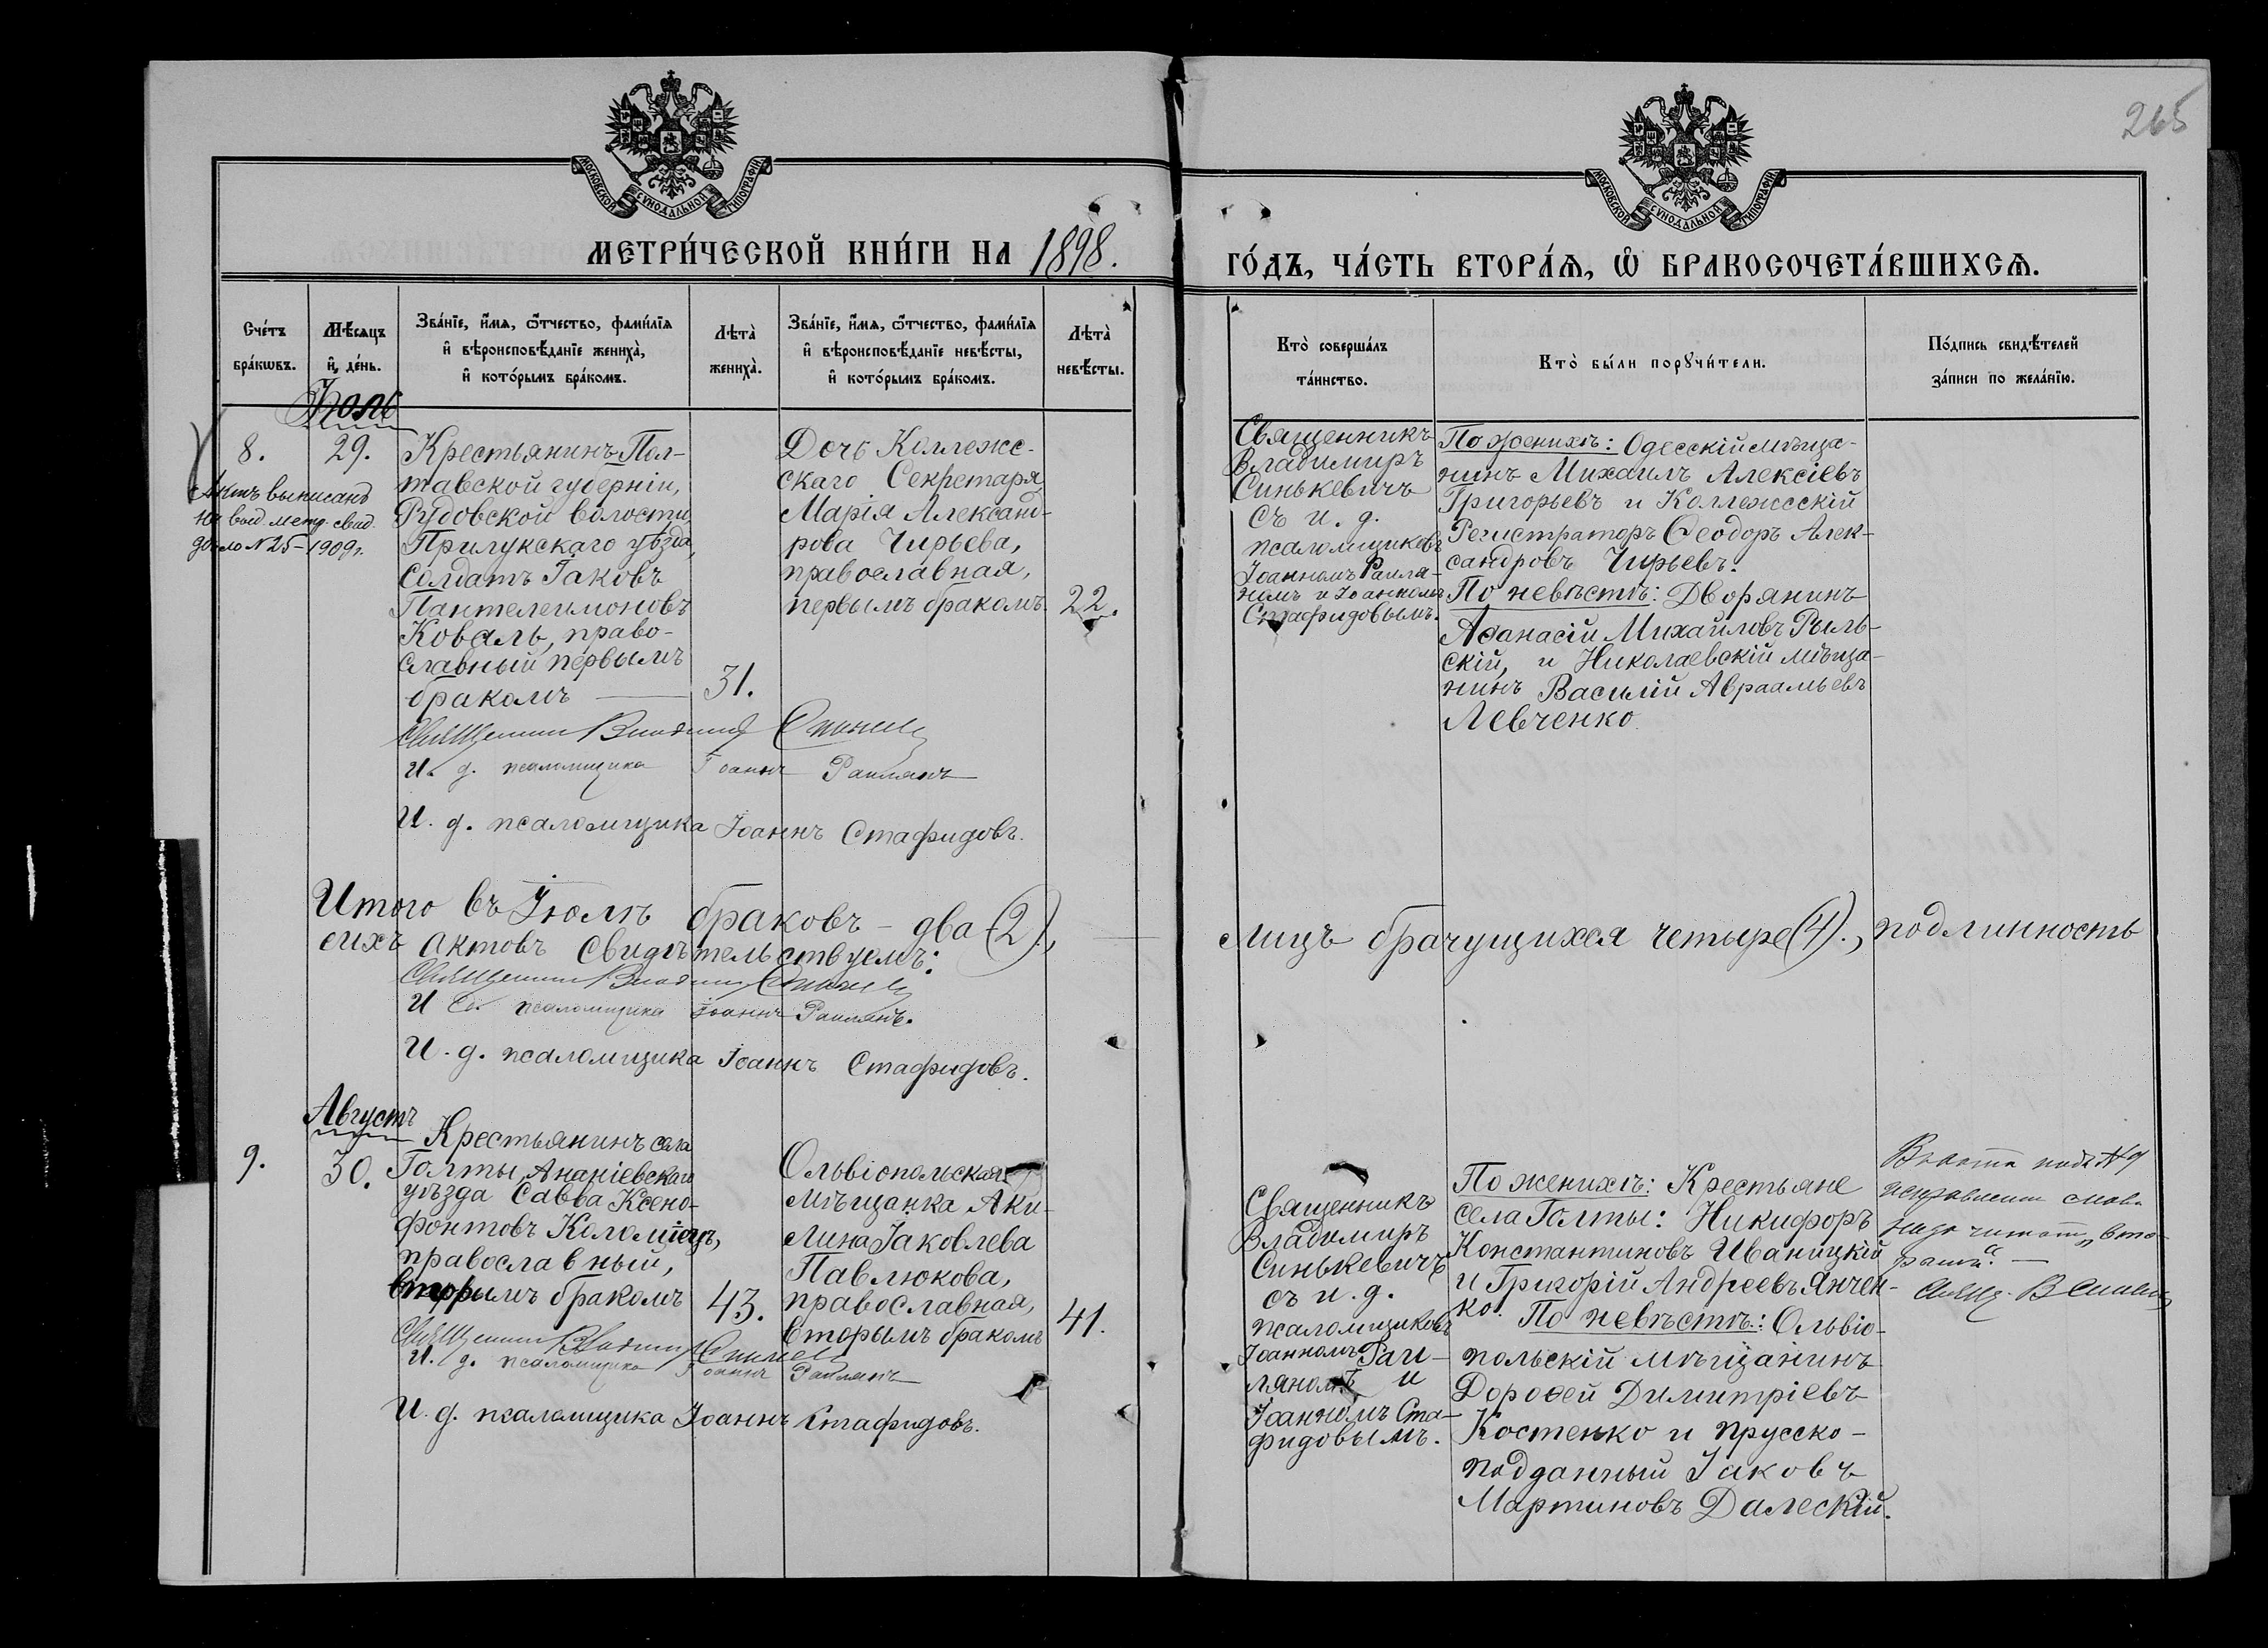 265
МОСКОВСКОЙ СУНОДАЛЬНОЙ ТИПОГРАФІИ
МОСКОВСКОЙ СУНОДАЛЬНОЙ ТИПОГРАФІИ
МЕТРИ́ЧЕСКОЙ КНИ́ГИ НА 1898.
ГО́ДЪ, ЧА́СТЬ ВТОРА́Ѧ, Ѽ БРАКОСОЧЕТА́ВШИХСѦ.
Сче́тъ
бра́кѡвъ.
Мѣ́сѧцъ
и҆ де́нь.
Зва́нїе, и҆́мѧ, ѻ҆́тчество, фами́лїѧ
и҆ вѣроисповѣ́данїе жениха̀,
и҆ кото́рымъ бра́комъ.
Лѣта̀
жениха̀.
Зва́нїе, и҆́мѧ, ѻ҆́тчество, фами́лїѧ
и҆ вѣроисповѣ́данїе невѣ́сты,
и҆ кото́рымъ бра́комъ.
Лѣта̀
невѣ́сты.
Кто̀ соверша́лъ
та́инство.
Кто̀ бы́ли порꙋчи́тели.
По́дпись свидѣ́телей
за́писи по жела́нїю.
Іюль
8.
Актъ выписанъ
на выд метр. свид.
дѣло N 25-1909 г.
29.
Крестьянинъ Пол-
тавской губерніи,
Рудовской волости,
Прилукскаго уѣзда,
солдатъ Іаковъ
Пантелеимоновъ
Коваль, право-
славный первымъ
бракомъ
31.
Дочь Коллежс-
скаго Секретаря
Марія Александ-
рова Чирьева,
православная,
первымъ бракомъ
22.
Священникъ
Владимиръ
Синькевичъ
съ и. д.
псаломщиковъ
Іоанномъ Раиля-
номъ и Іоанномъ
Стафидовымъ.
По женихѣ: Одесскій мѣща-
нинъ Михаилъ Алексіевъ
Григорьевъ и Коллежсскій
Регистраторъ Ѳеодоръ Алек-
сандровъ Чирьевъ.
По невѣстѣ: Дворянинъ
Аѳанасій Михайловъ Рыль-
скій, и Николаевскій мѣща-
нинъ Василій Авраамьевъ
Левченко
Священникъ Владимиръ Синькевичъ
И. д. псаломщика Іоаннъ Раилянъ
И. д. псаломщика Іоаннъ Стафидовъ.
Итого въ Іюлѣ браковъ – два (2),
лицъ брачущихся четыре (4)., подлинность
сихъ актовъ свидѣтельствуемъ:
Священникъ Владимиръ Синькевичъ
И д. псаломщика Іоаннъ Раилянъ.
И. д. псаломщика Іоаннъ Стафидовъ.
Августъ
9.
30.
Крестьянинъ села
Голты, Ананіевскаго
уѣзда Савва Ксено-
фонтовъ Коломіецъ,
православный,
вторымъ бракомъ
43.
Ольвіопольская
мѣщанка Аки-
лина Іаковлева
Павлюкова,
православная,
вторымъ бракомъ
41.
Священникъ
Владимиръ
Синькевичъ
съ и. д.
псаломщиковъ
Іоанномъ Раи-
ляномъ и
Іоанномъ Ста-
фидовымъ.
По женихѣ: Крестьяне
села Голты: Никифоръ
Константиновъ Иваницкій
и Григорій Андреевъ Янчен-
ко. По невѣстѣ: Ольвіо-
польскій мѣщанинъ
Дороѳей Димитріевъ
Костенко и прусско-
подданный Іаковъ
Мартиновъ Далескій.
Въ актѣ подъ № 9
исправленное слово
надо читать „вто-
рымъ“. –
Свящ. В Синькевичъ
Священникъ Владимиръ Синькевичъ
И. д. псаломщика Іоаннъ Раилянъ
И. д. псаломщика Іоаннъ Стафидовъ.